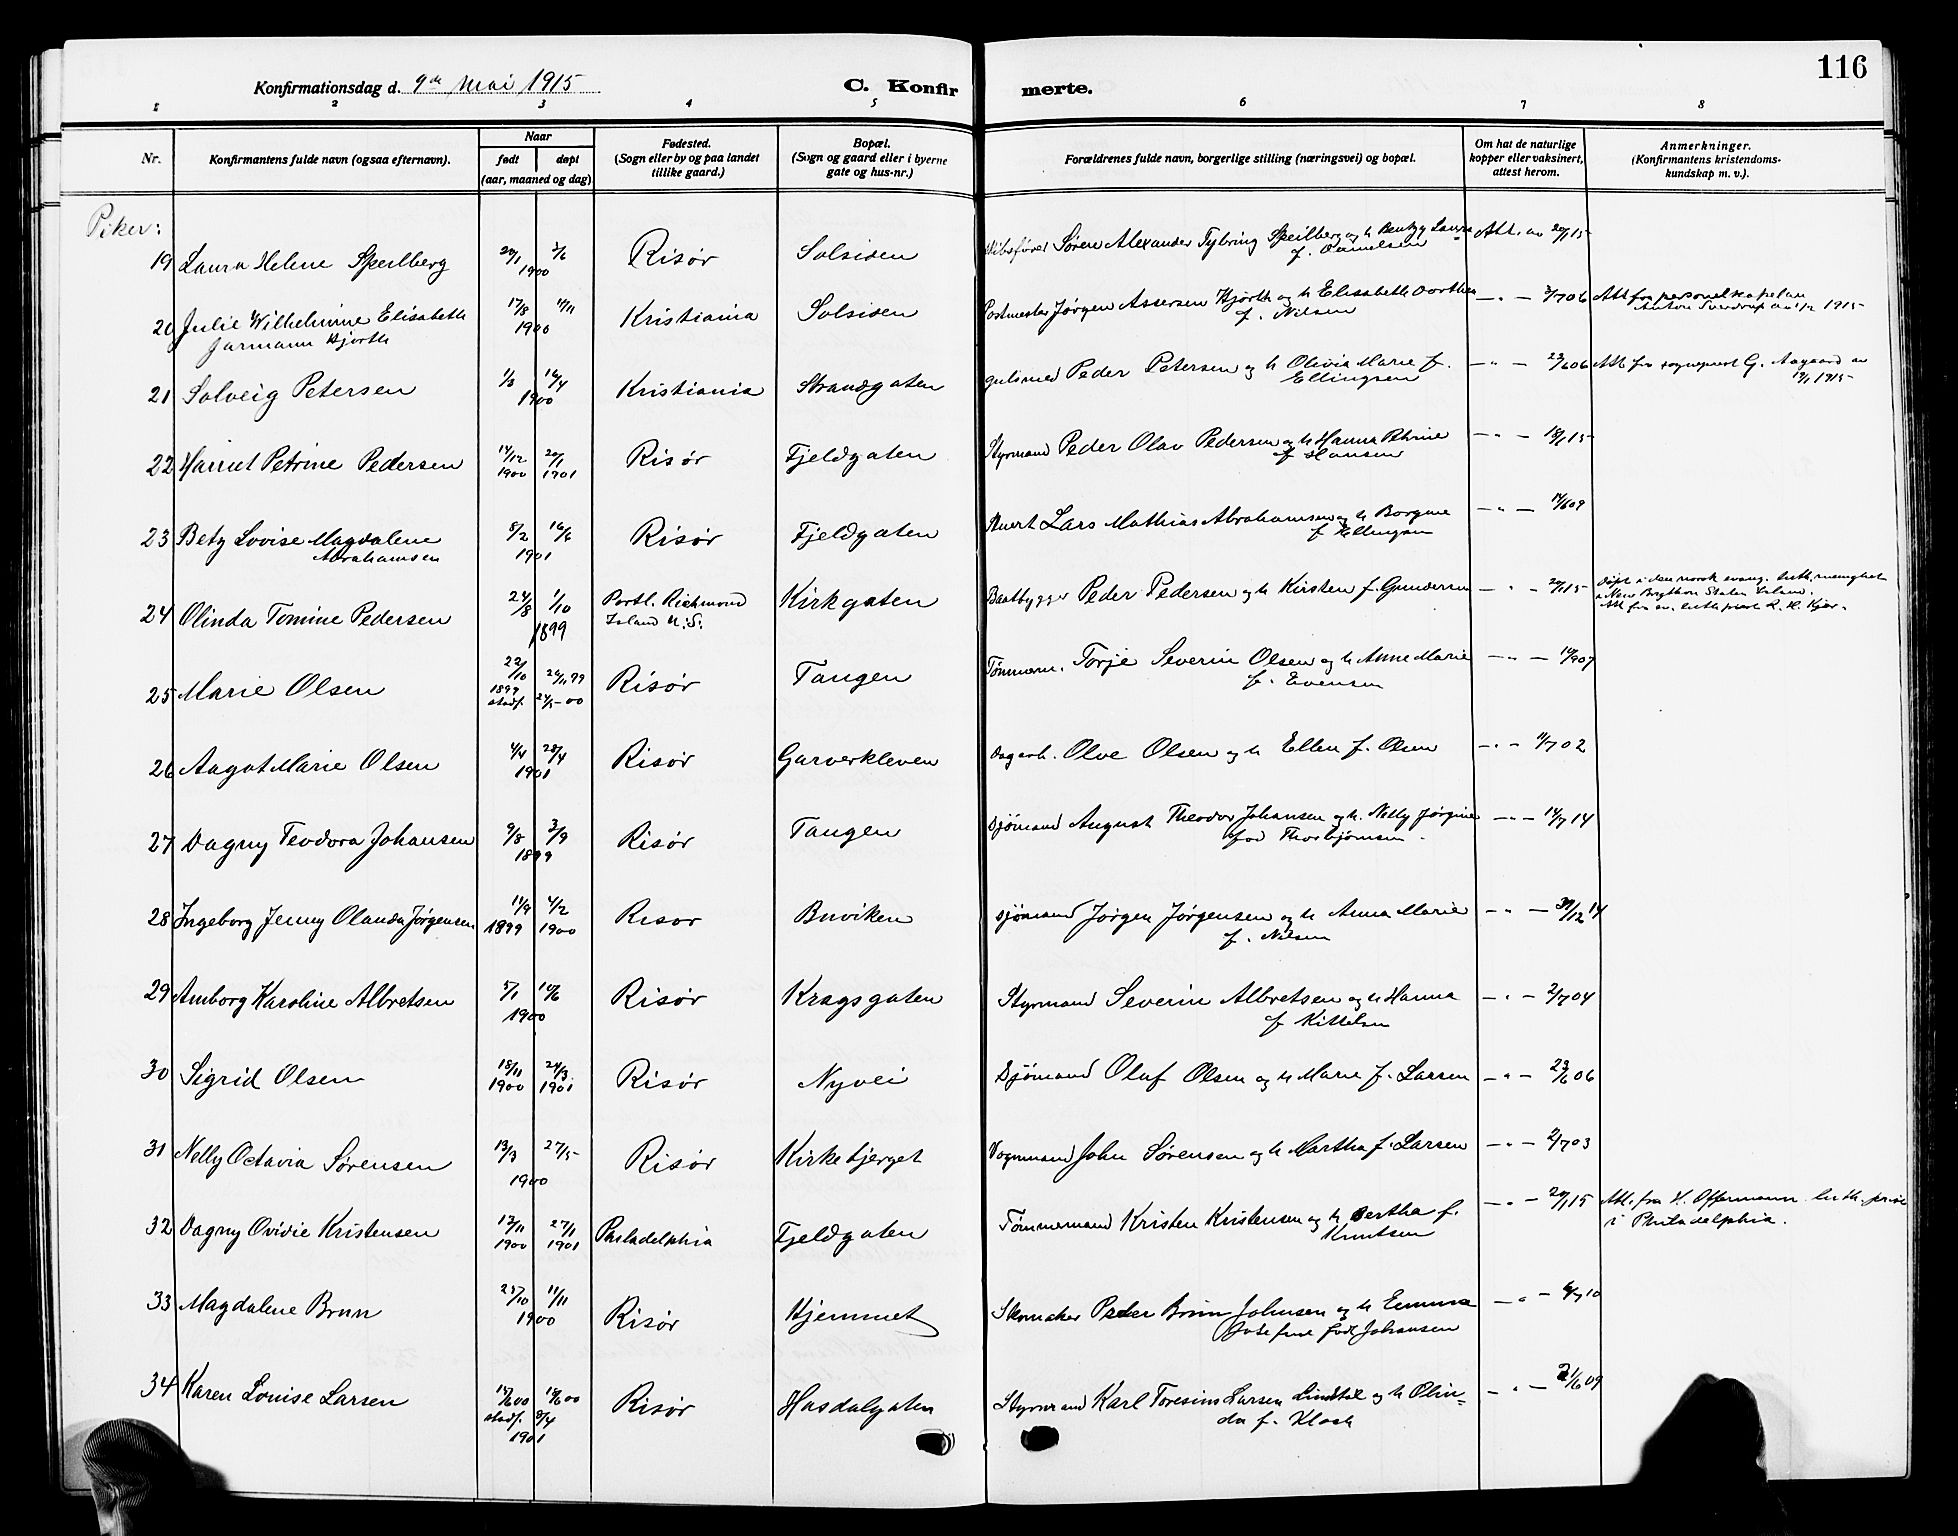 116
Konfirmationsdag d. 9de Mai 1915
C. Konfir merte.
1 2 3 4 5 6 7 8
Nr.
Konfirmantens fulde navn (ogsaa efternavn).
Naar
født døpt
(aar, maaned og dag)
Fødested.
(Sogn eller by og paa landet
tillike gaard.)
Bopæl.
(Sogn og gaard eller i byerne
gate og hus-nr.)
Forældrenes fulde navn, borgerlige stilling (næringsvei) og bopæl.
Om hat de naturlige
kopper eller vaksinert,
attest herom.
Anmerkninger.
(Konfirmantens kristendoms-
kundskap m. v.).
Piker:
19 Laura Helene Speilberg 20/1 3/6 1900 Risør Solsiden Skibsfører Søren Alexander Tybring Speilberg og h Laura
f. Danielsen
20 Julie Wilhelmine Elisabeth 17/8 11/11 1900 Kristiania Solsiden Postmester Jørgen Assersen Hjorth og h Elisabeth Dorthea — " — 3/7 06 Att fra personelkapelan
Jarmann Hjorth f. Nilsen Anton 1915
21 Solveig Petersen 1/3 16/4 1900 Kristiania Strandgaten gulsmed Peder Petersen og h Olivia Marie f. — " — 23/6 06 Att fra sogneprest G. Aagaard av
Ellingsen 1915
22 Harriet Petrine Pedersen 14/12 1900 20/1 1901 Risør Fjeldgaten Styrmand Peder Olav Pedersen og h Hanna Petrine — " — 18/1 15
f Hansen
23 Bety Lovise Magdalene 8/2 16/6 1901 Risør Fjeldgaten Lars Mathias Abrahamsen og h Borgine — " — 14/6 09
Abrahamsen f Ellingsen
24 Olinda Tomine Pedersen 24/8 1/10 1899 Portl. Richmond Kirkgaten Baatbygger Peder Pedersen og h Kirsten f. Gundersen — " — 20/1 15 Døpt i den norsk evang. luth. menighet
Island U. S. i New Brighton Staten Island.
Att fra ev. luth prest
25 Marie Olsen 22/10 1899 26/11 99 Risør Tangen Tømmerm. Torje Severin Olsen og h Anne Marie — " — 14/9 07
stadf. 24/5 - 00 f. Evensen
26 Aagot Marie Olsen 4/4 28/4 1901 Risør Garverkleven Dagarb. Olve Olsen og h Ellen f. Olsen — " — 11/7 02
27 Dagny Teodora Johansen 9/8 3/9 1899 Risør Tangen Sjømand August Theodor Johansen og h. Nelly Jørgine — " — 14/7 14
fød Thorbjørnsen.
28 Ingeborg Jenny Olanda Jørgensen 11/9 1899 4/2 1900 Risør Buviken Sjømand Jørgen Jørgensen og h Anna Marie — " — 30/12 14
f. Nilsen
29 Amborg Karoline Albretsen 5/1 10/6 1900 Risør Kragsgaten Styrmand Severin Albretsen og h Hanna — " — 2/7 04
f Kittelsen
30 Sigrid Olsen 18/11 1900 24/3 1901 Risør Nyvei Sjømand Oluf Olsen og h Marie f. Larsen — " — 23/6 06
31 Nelly Octavia Sørensen 13/3 27/5 1900 Risør Kirkebjerget Vognmand John Sørensen og h Martha f. Larsen — " — 2/7 03
32 Dagny Ovidie Kristensen 17/11 1900 27/1 1901 Philadelphia Fjeldgaten Tømmermand Kristen Kristensen og h Bertha f. — " — 20/1 15 Att. fra H. Offermann luth. prest
Knutsen i Philadelphia.
33 Magdalene Brun 25/10 11/11 1900 Risør Hjemmet Skomaker Peder Brun Johnsen og h Emma — " — 6/7 10
Josefine født Johansen
34 Karen Louise Larsen 14/6 00 14/6 00 Risør Hasdalgaten Styrmand Karl Toresius Larsen Lindtol og h Olin-
stadf. 8/4 1901 da f. Klock — " — 21/6 09